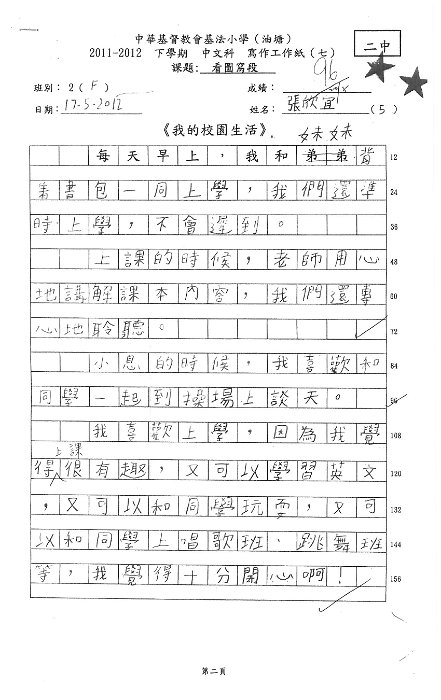 中華基督教會基法小學（油塘）
二中
2011-2012 下學期 中文科 寫作工作紙（七）
課題: 看圖寫段
96
班別: 2(F) 成績:
日期: 17-5-2012 姓名: 張欣宜(5)
《我的校園生活》
妹妹
每天早上，我和弟弟背 12
着書包一同上學，我們還準 24
時上學，不會遲到。 36
上課的時候，老師用心 48
地講解課本內容，我們還專 60
心地聆聽。 72
小息的時候，我喜歡和 84
同學一起到操場上談天。 96
我喜歡上學，因為我覺 108
上課
得很有趣，又可以學習英文 120
，又可以和同學玩耍，又可 132
以和同學上唱歌班、跳舞班 144
等，我覺得十分開心啊！ 156
第二頁